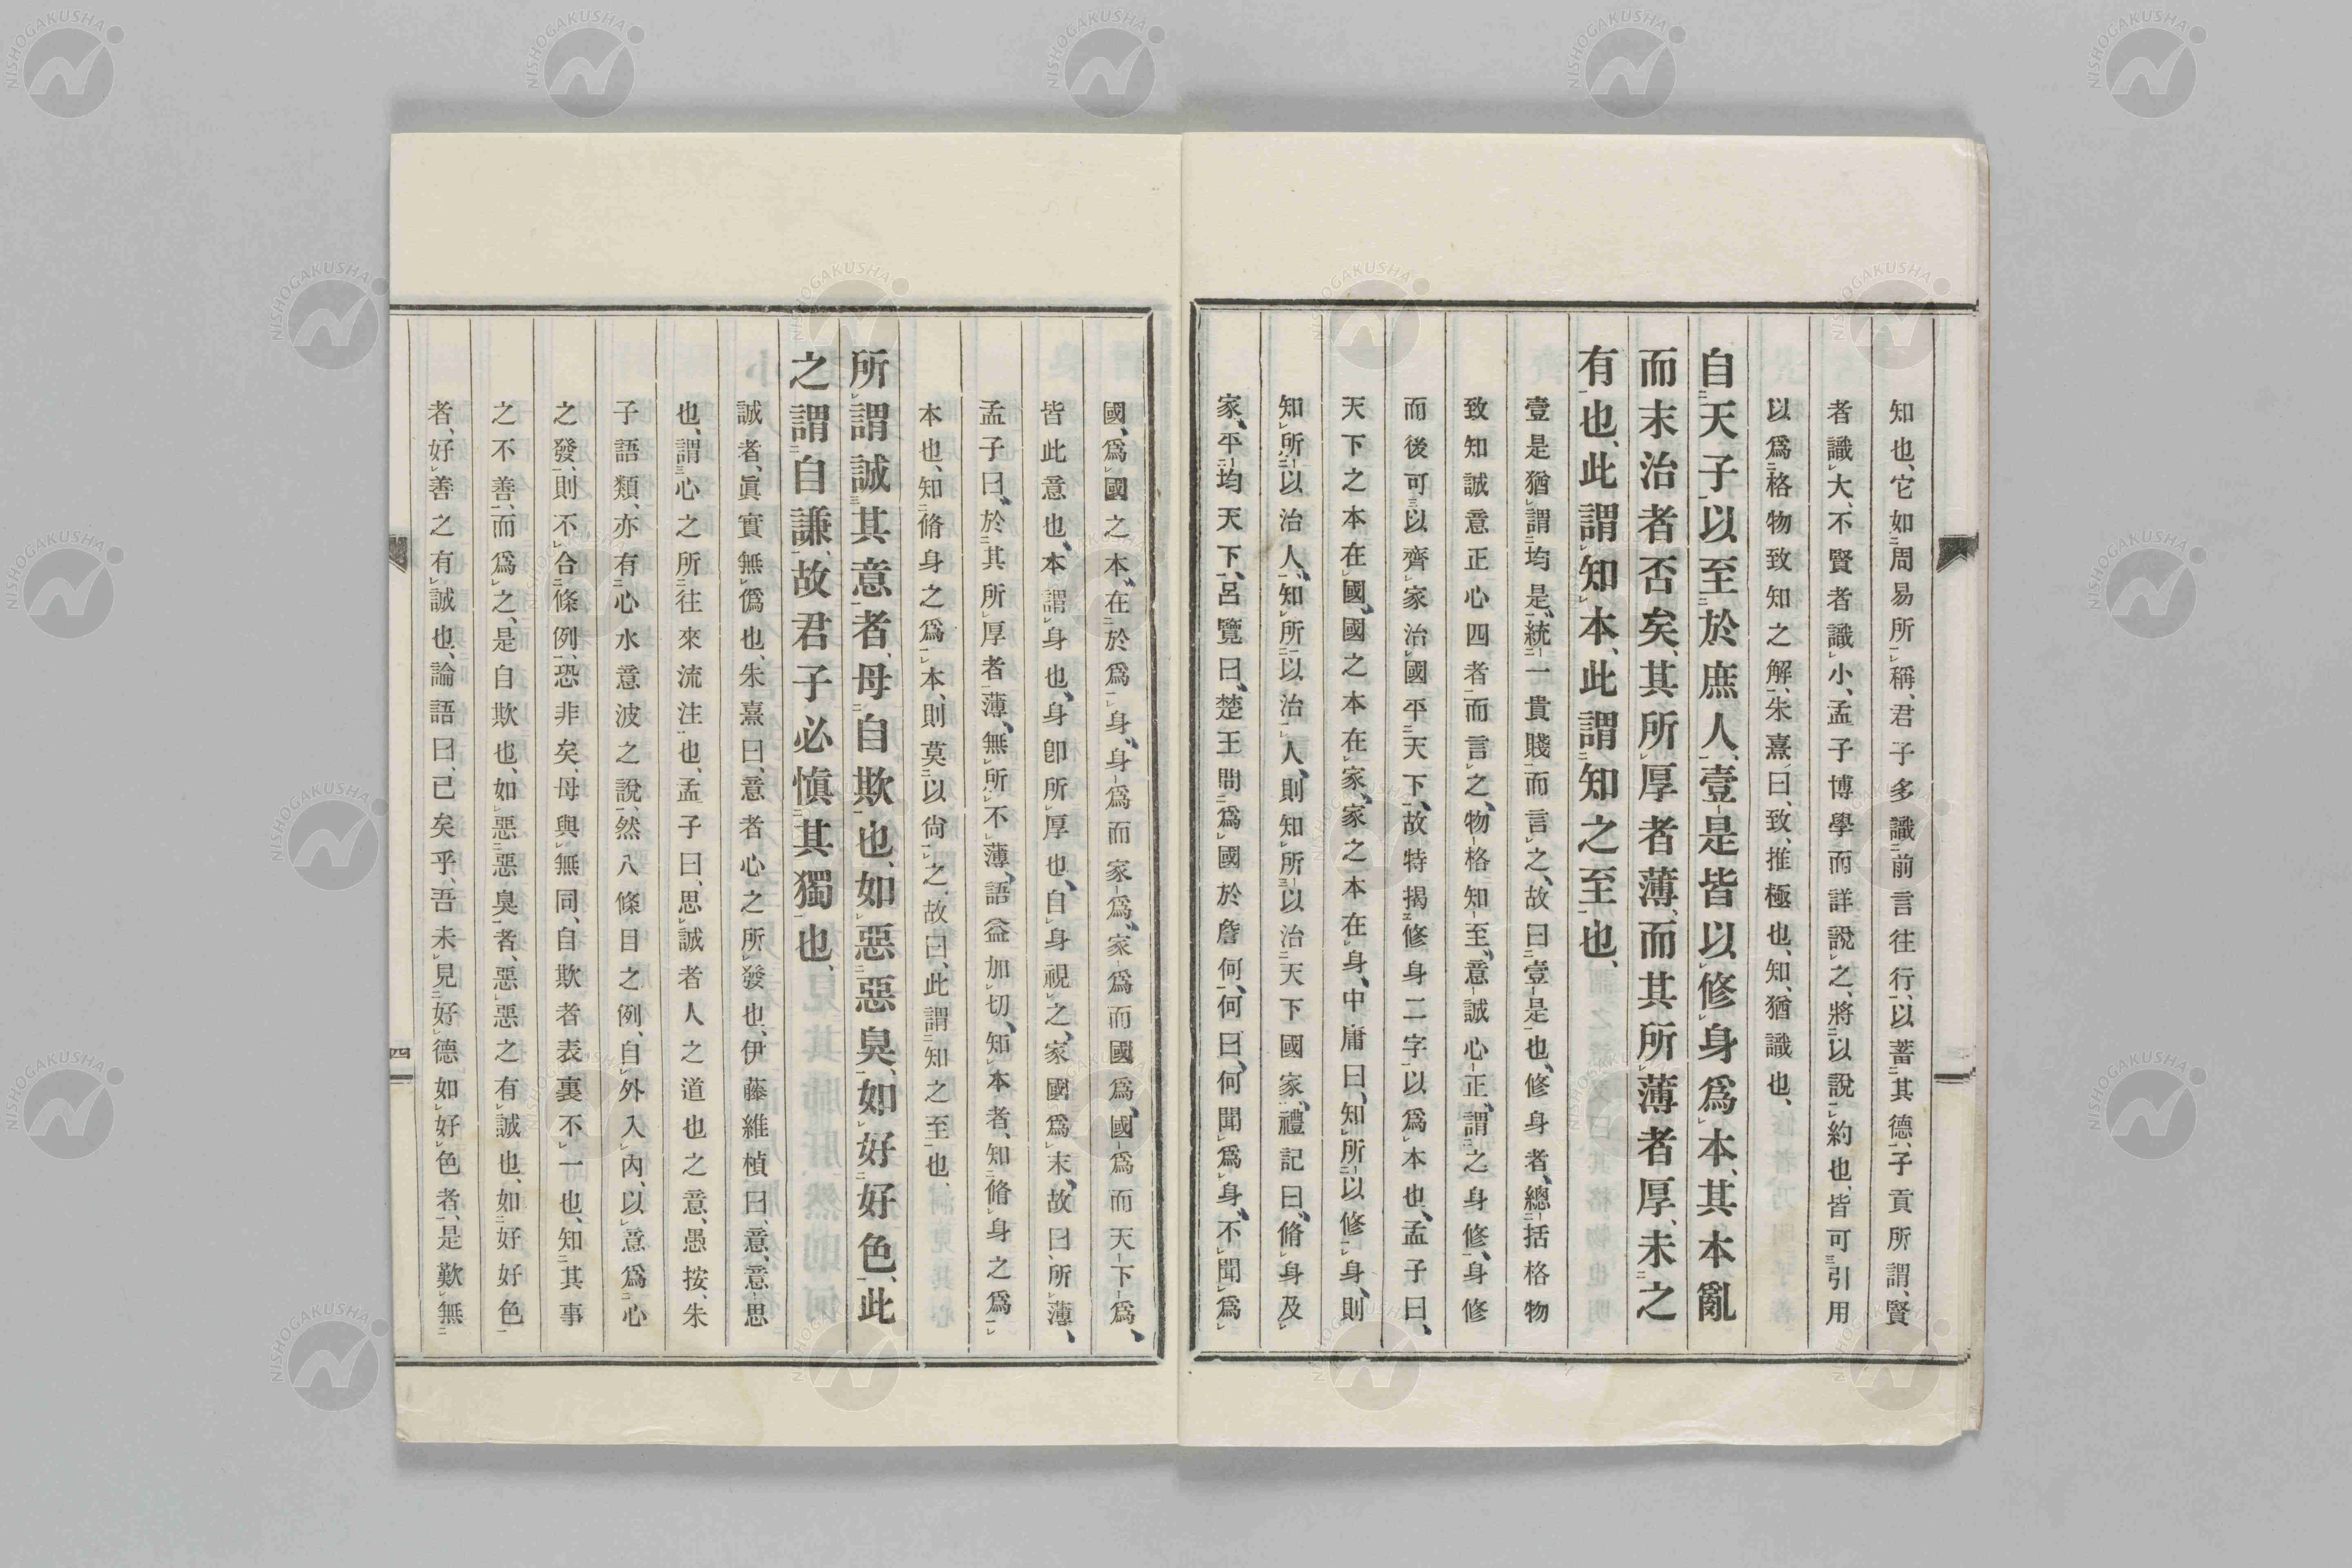 知也、它如周易所稱、君子多識前言往行、以蓄其德、子貢所謂、賢
者識大、不賢者識小、孟子博學而詳說之、將以說約也、皆可引用
以爲格物致知之解、朱熹曰、致、推極也、知、猶識也、
自天子以至於庶人、壹是皆以修身爲本、其本亂
而末治者否矣、其所厚者薄、而其所薄者厚、未之
有也、此謂知本、此謂知之至也、
壹是猶謂均是、統一貴賤而言之、故曰壹是也、修身者、總括格物
致知誠意正心四者而言之、物格知至、意誠心正、謂之身修、身修
而後可以齊家治國平天下、故特揭修身二字、以爲本也、孟子曰、
天下之本在國、國之本在家、家之本在身、中庸曰、知所以修身、則
知所以治人、知所以治人、則知所以治天下國家、禮記曰、脩身及
家、平均天下、呂覽曰、楚王問爲國於詹何、何曰、何聞爲身、不聞爲
國、爲國之本、在於爲身、身爲而家爲、家爲而國爲、國爲而天下爲、
皆此意也、本謂身也、身卽所厚也、自身視之、家國爲末、故曰所薄、
孟子曰、於其所厚者薄、無所不薄、語益加切、知本者、知脩身之爲
本也、知脩身之爲本、則莫以尙之、故曰、此謂知之至也、
所謂誠其意者、毋自欺也、如惡惡臭、如好好色、此
之謂自謙、故君子必愼其獨也、
誠者、眞實無僞也、朱熹曰、意者心之所發也、伊藤維楨曰、意、意思
也、謂心之所往來流注也、孟子曰、思誠者人之道也之意、愚按、朱
子語類、亦有心水意波之說、然八條目之例、自外入內、以意爲心
之發、則不合條例、恐非矣、毋與無同、自欺者表裏不一也、知其事
之不善、而爲之、是自欺也、如惡惡臭者、惡惡之有誠也、如好好色
者、好善之有誠也、論語曰、已矣乎、吾未見好德如好色者、是歎無
四
NISHOGAKUSHA